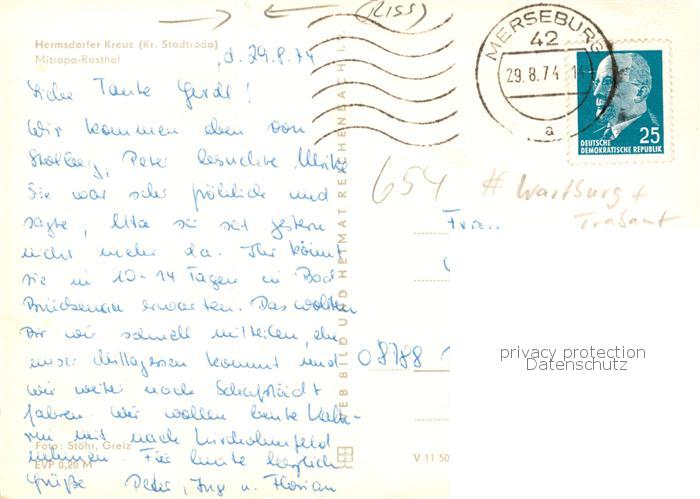 (RISS)
Hermsdorfer Kreuz (Kr. Stadtroda)
Mitropa-Rasthof
d. 29.8.74
MERSEBURG
42
29.8.74
a
25
DEUTSCHE
DEMOKRATISCHE REPUBLIK
Liebe Tante Gerdl!
Wir kommen eben von
Stolberg, Peter besuchte Ulrike
Sie war sehr fröhlich und
sagte, Uta sei seit gestern
nicht mehr da. Ihr könnt
sie in 10-14 Tagen in Bad
Brückenau erwarten. Das wollten
wir schnell mitteilen, ehe
unser Mittagessen kommt und
wir weiter nach Schafstädt
fahren. Wir wollen heute
mit nach
nehmen. Für heute herzliche
Grüße Peter, Ing u. Florian
654
# Wartburg +
Trabant
Frau
08788
BILD UND HEIMAT REICHENBACH I. V.
Foto: Stöhr, Greiz
EVP 0,20 M
V 11 50
privacy protection
Datenschutz